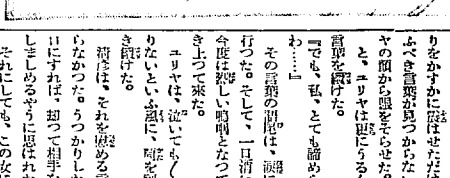 りをかすかに震はせただけ
ふべき言葉が見つからない
ヤの顔から眼をそらせた。
と、ユリヤは更にうるん
言葉を続けた。
『でも、私、とても諦めら
わ……』
その言葉の語尾は、涙に
行つた。そして、一旦消え
今度は激しい嗚咽となつて
き上つて来た。
ユリヤは、泣いても〱
りないといふ風に、肩を
き続けた。
清彦は、それを慰める言
らなかつた。うつかりした
口にすれば、却つて相手を
しましめるやうに思はれた
それにしても、この女